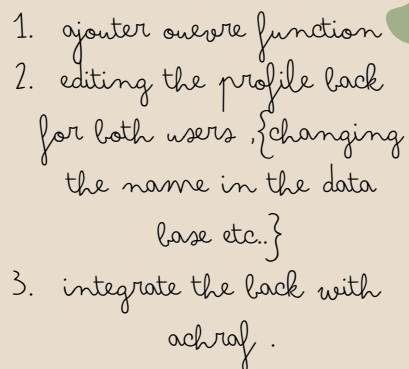 1. ajouter ouevre function
2. editing the profile back
for both users ,{changing
the name in the data
base etc..}
3. integrate the back with
achraf .